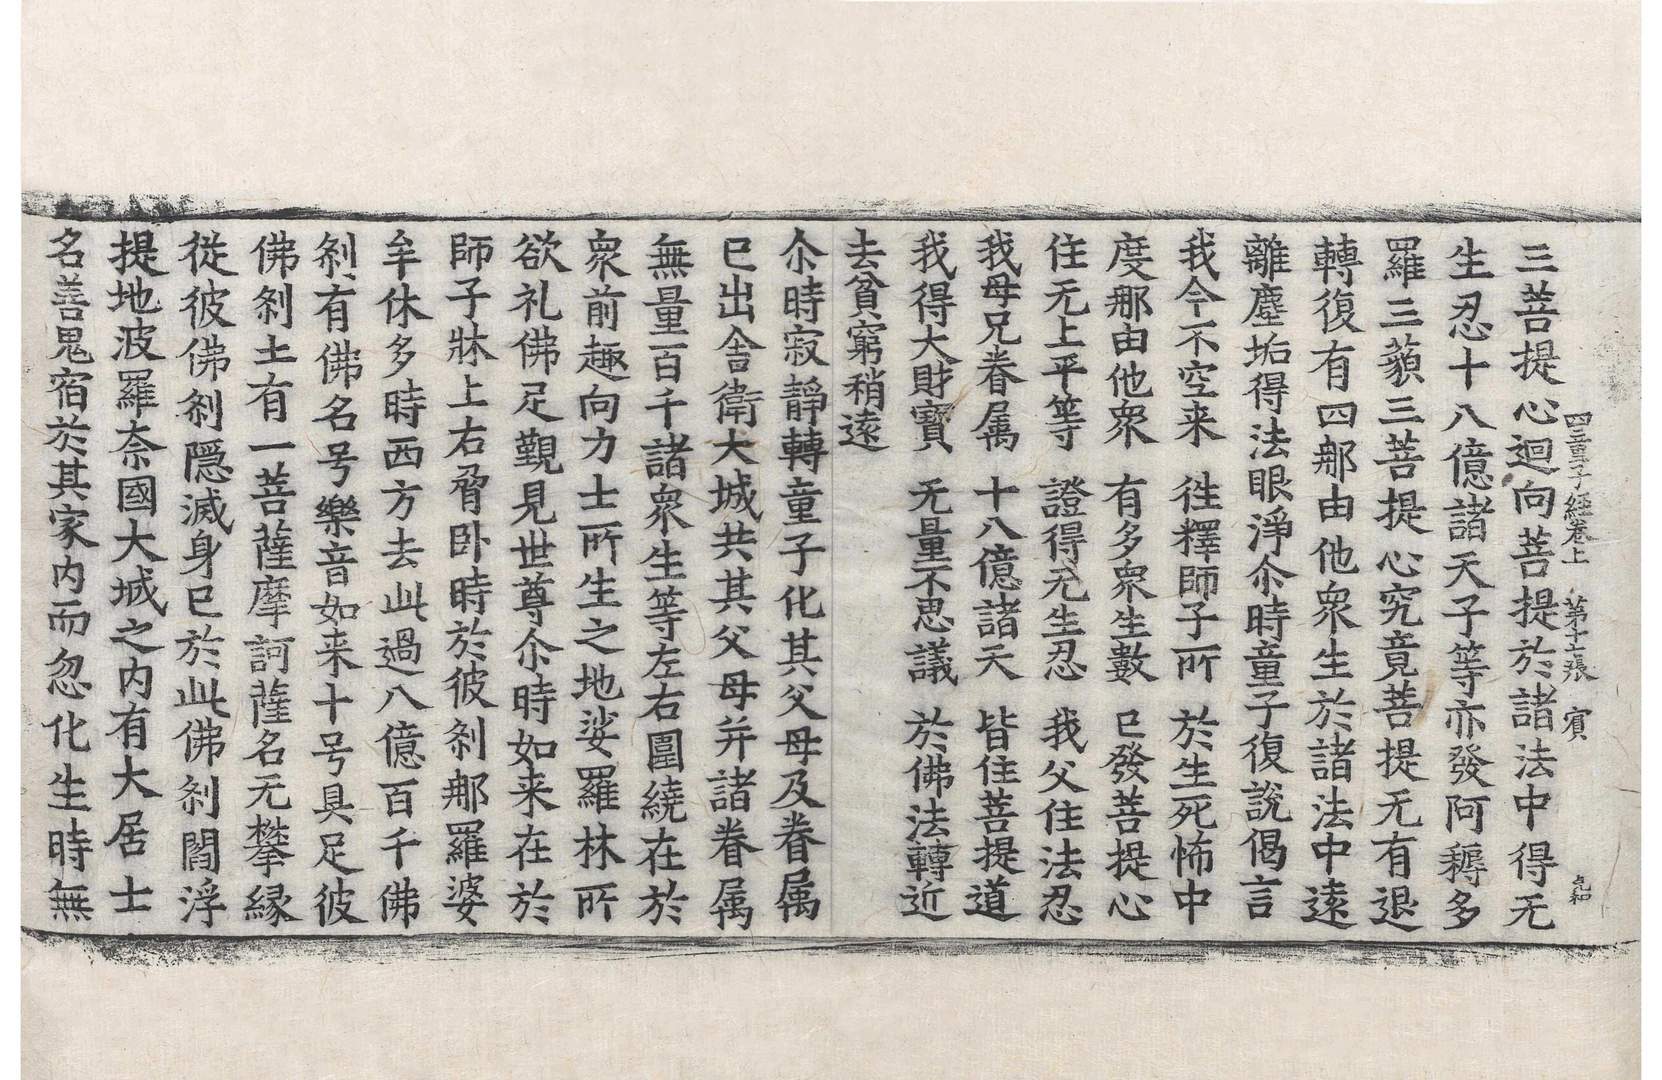 四童子經卷上　第十七張　賓
三菩提心迴向菩提於諸法中得无
生忍十八億諸天子等亦發阿耨多
羅三藐三菩提心究竟菩提无有退
轉復有四那由他衆生於諸法中遠
離塵垢得法眼淨尒時童子復說偈言
我今不空来　徃釋師子所　於生死怖中
度那由他衆　有多衆生數　已發菩提心
住无上平等　證得无生忍　我父住法忍
我母兄眷属　十八億諸天　皆住菩提道
我得大財寳　无量不思議　於佛法轉近
去貧窮稍遠
尒時寂靜轉童子化其父母及眷属
已出舎衛大城共其父母并諸眷属
無量百千諸衆生等左右圍繞在於
衆前趣向力士所生之地娑羅林所
欲礼佛足觀見世尊尒時如来在於
師子牀上右脅卧時於彼剎那羅婆
牟休多時西方去此過八億百千佛
剎有佛名号樂音如来十号具足彼
佛剎土有一菩薩摩訶薩名无攀縁
從彼佛剎隠滅身已於此佛剎閻浮
提地波羅柰國大城之内有大居士
名善鬼宿於其家内而忽化生時無